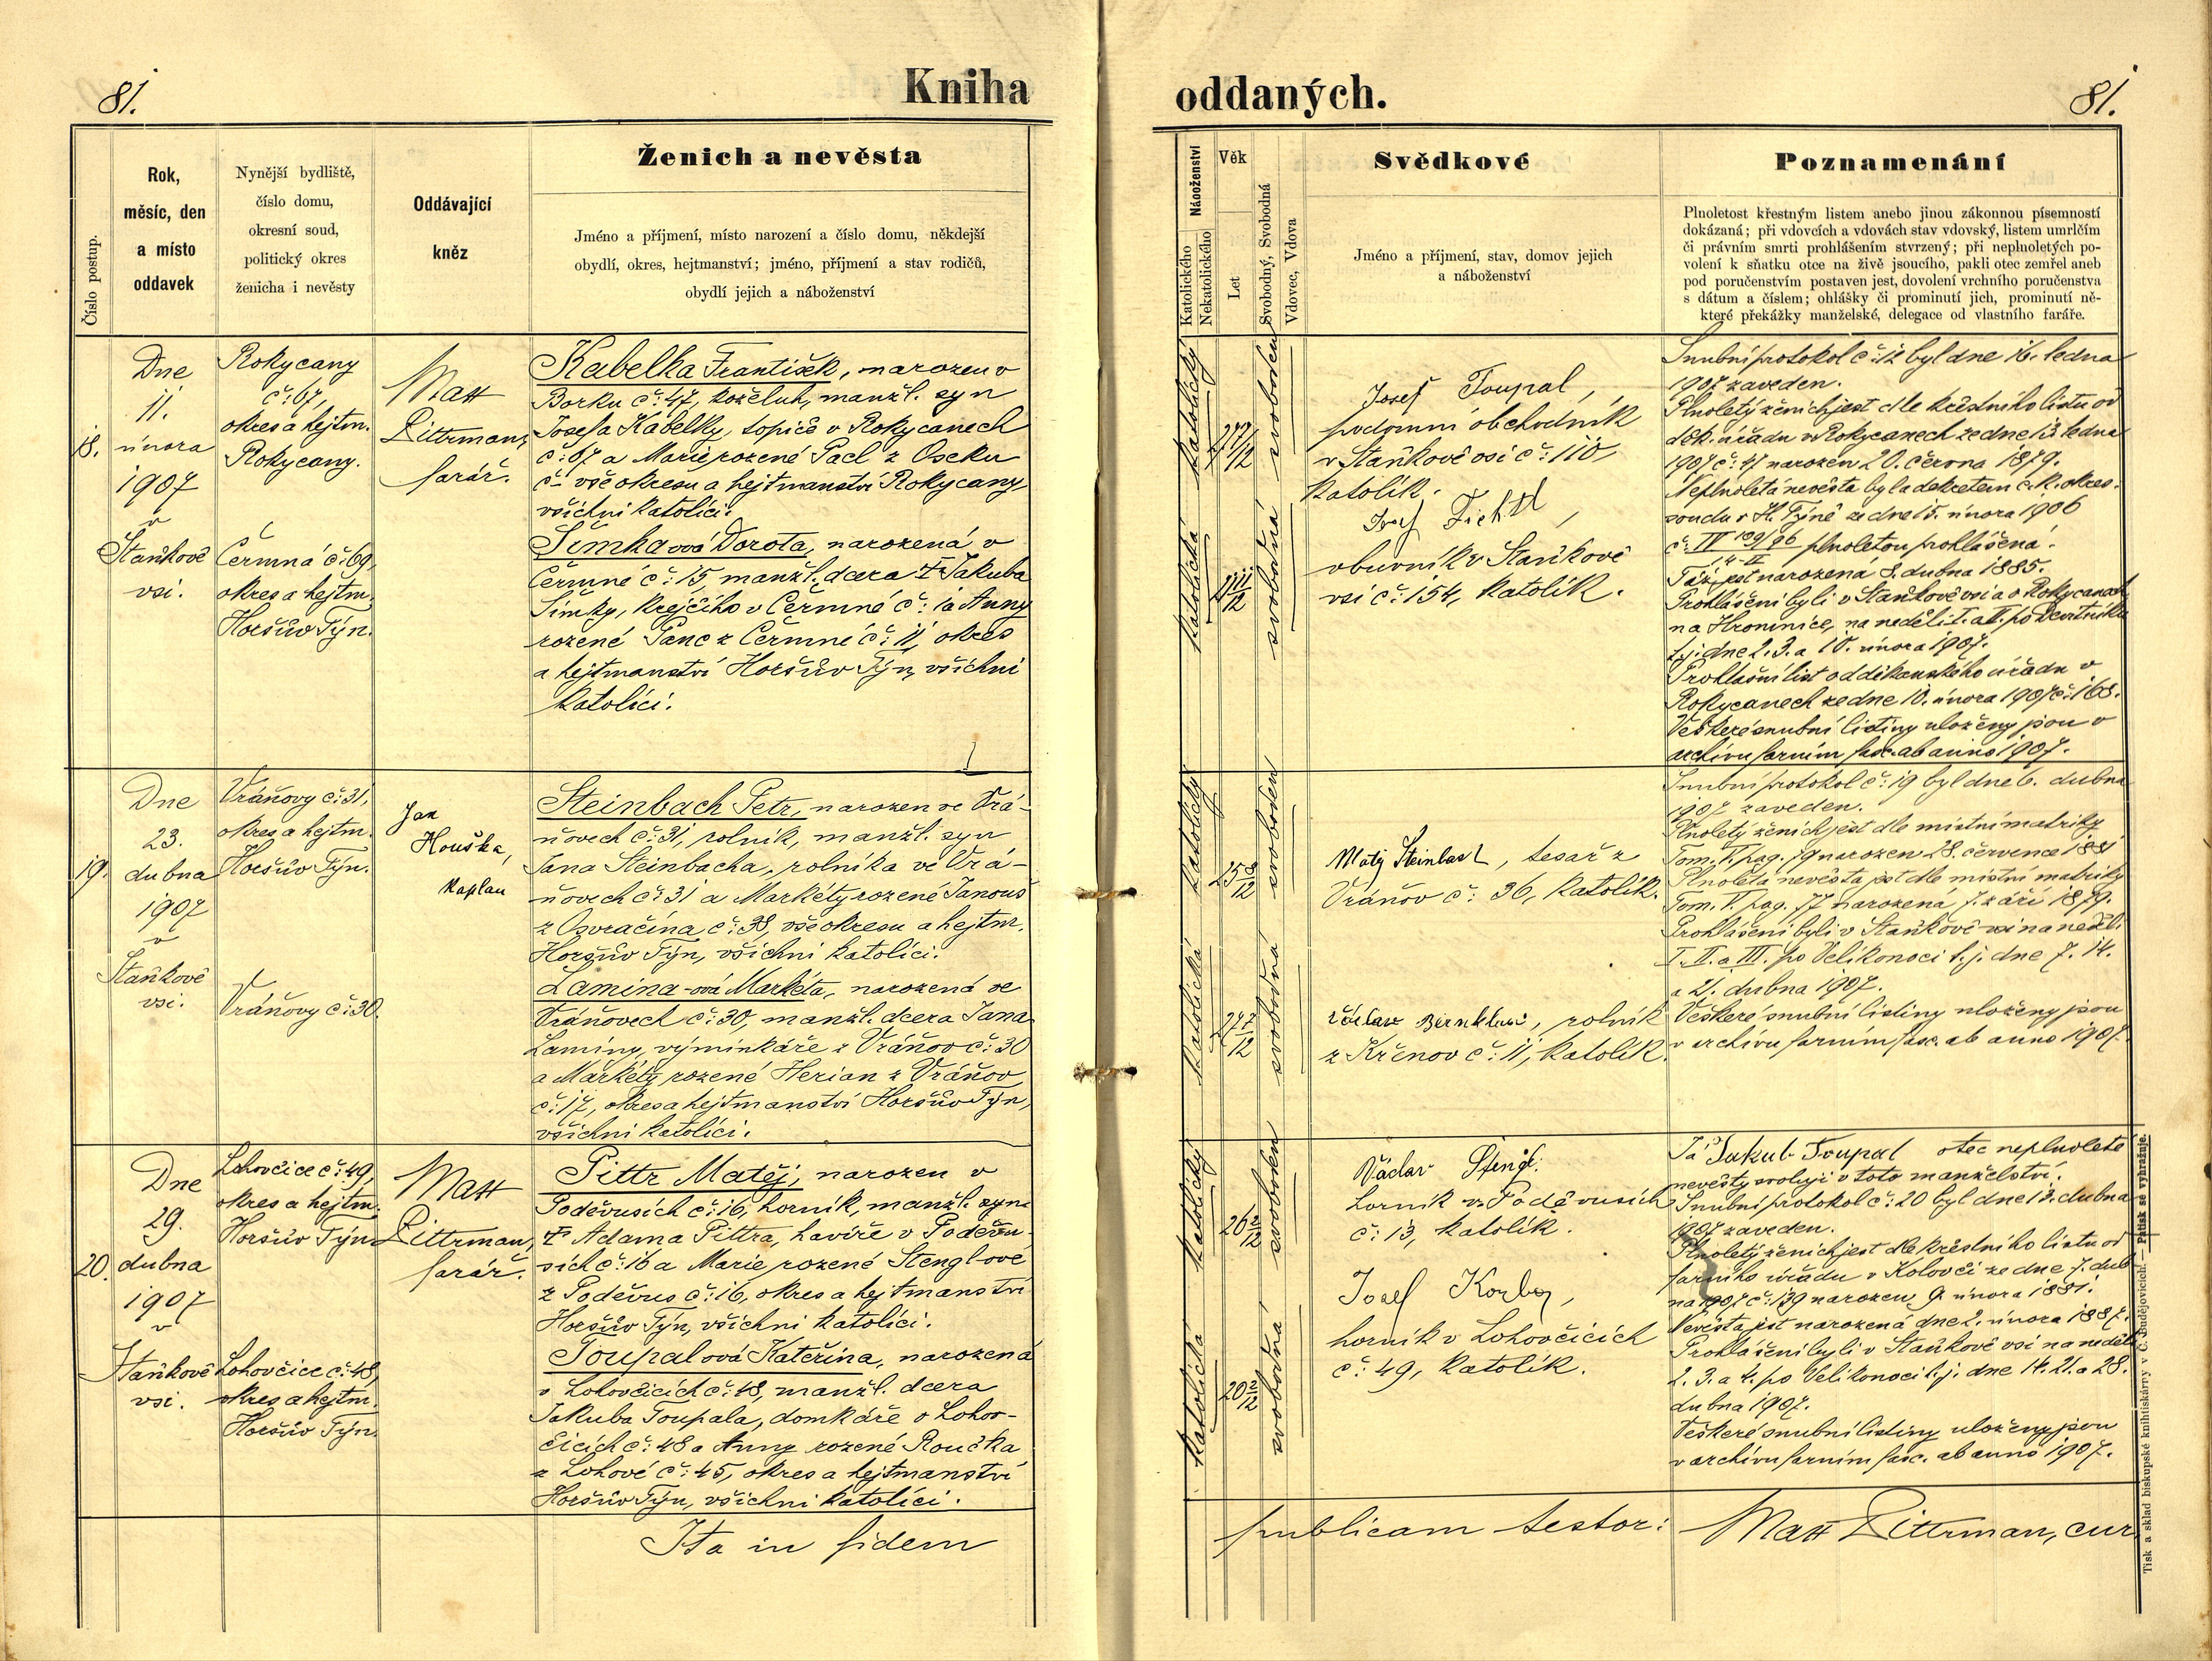 81.
Kniha
Číslo postup.
Rok,
měsíc, den
a místo
oddavek
Nynější bydliště,
číslo domu,
okresní soud,
politický okres
ženicha i nevěsty
Oddávající
kněz
Ženich a nevěsta
Jméno a příjmení, místo narození a číslo domu, někdejší
obydlí, okres, hejtmanství; jméno, příjmení a stav rodičů,
obydlí jejich a náboženství
18.
Dne
11.
února
1907
v
Staňkově
vsi.
Rokycany
č: 67,
okres a hejtm.
Rokycany.
Čermná č: 69,
okres a hejtm.
Horšův Týn.
Matt
Pittrman,
farář.
Kabelka František, narozen v
Borku č: 47, koželuh, manžl. syn
Josefa Kabelky, topiče v Rokycanech
č: 67 a Marie rozené Pacl z Oseku
č. vše okresu a hejtmanství Rokycany,
všichni katolíci.
Šimkaová Dorota, narozená v
Čermné č: 15, manžl. dcera † Jakuba
Šimky, krejčího v Čermné č: 1 a Anny
rozené Panc z Čermné č: 11, okres
a hejtmanství Horšův Týn, všichni
katolíci.
19.
Dne
23.
dubna
1907
v
Staňkově
vsi.
Vráňovy č: 31,
okres a hejtm.
Horšův Týn.
Vráňovy č: 30.
Jan
Houška,
kaplan
Steinbach Petr, narozen ve Vrá-
ňovech č: 31, rolník, manžl. syn
Jana Steinbacha, rolníka ve Vrá-
ňovech č: 31 a Markéty rozené Janouš
z Osvračína č: 38, vše okresu a hejtm.
Horšův Týn, všichni katolíci.
Lamina-ová Markéta, narozená ve
Vráňovech č: 30, manžl. dcera Jana
Laminy, výminkáře z Vráňov č: 30
a Markéty rozené Herian z Vráňov
č: 17, okres a hejtmanství Horšův Týn,
všichni katolíci.
20.
Dne
29.
dubna
1907
v
Staňkově
vsi.
Lohovčice č: 49,
okres a hejtm.
Horšův Týn.
Lohovčice č: 48,
okres a hejtm.
Horšův Týn.
Matt
Pittrman,
farář.
Pittr Matěj, narozen v
Poděvusích č: 16, horník, manžl. syn
† Adama Pittra, havíře v Poděvu-
sích č: 16 a Marie rozené Stengl-ové
z Poděvus č: 16, okres a hejtmanství
Horšův Týn, všichni katolíci.
Toupalová Kateřina, narozená
v Lohovčicích č: 48, manžl. dcera
Jakuba Toupala, domkáře v Lohov-
čicích č: 48 a Anny rozené Roučka
z Lohové č: 45, okres a hejtmanství
Horšův Týn, všichni katolíci.
Ita in fidem
oddaných.
81.
Náboženství
Katolického
Nekatolického
Věk
Let
Svobodný, Svobodná
Vdovec, Vdova
Svědkové
Jméno a příjmení, stav, domov jejich
a náboženství
Poznamenání
Plnoletost křestným listem anebo jinou zákonnou písemností
dokázaná; při vdovcích a vdovách stav vdovský, listem umrlčím
či právním smrti prohlášením stvrzený; při neplnoletých po-
volení k sňatku otce na živě jsoucího, pakli otec zemřel aneb
pod poručenstvím postaven jest, dovolení vrchního poručenstva
s dátum a číslem; ohlášky či prominutí jich, prominutí ně-
které překážky manželské, delegace od vlastního faráře.
katolický
27 7/12
svoboden
katolická
svobodná
Josef Toupal,
podomní obchodník
v Staňkově vsi č: 110
katolík.
Josef Fichtl,
obuvník v Staňkově
vsi č: 154, katolík.
Snubní protokol č: 12 byl dne 16. ledna
1907 zaveden.
Plnoletý ženich jest dle křestního listu od
děk. úřadu v Rokycanech ze dne 13. ledna
1907 č: 47 narozen 20. června 1879.
Neplnoletá nevěsta byla dekretem c. k. okres.
soudu v H. Týně ze dne 15. února 1906
plnoletou prohlášena.
Táž jest narozená 8. dubna 1885.
Prohlášeni byli v Staňkově vsi a v Rokycanech
na Hromnice, na neděli
t. j. dne 2. 3. a 10. února 1907.
Prohlašní list od děkanského úřadu v
Rokycanech ze dne 10. února 1907 č: 168.
Veškeré snubní listiny uloženy jsou v
archivu farním fasc. ab anno 1907.
katolický
25 8/12
svoboden
katolická
27 7/12
svobodná
Matěj Steinbach, tesař z
Vráňov č: 36, katolík.
Václav Bernklau, rolník
z Křenov č: 11, katolík.
Snubní protokol č: 19 byl dne 6. dubna
1907 zaveden.
Plnoletý ženich jest dle místní matriky
Tom. V. pag. narozen 28. července 1881
Plnoletá nevěsta jest dle místní matriky
Tom. V. pag. 77 narozená 7. září 1879.
Prohlášeni byli v Staňkově vsi na neděli
I. II. a III. po Velikonoci t. j. dne 7. 14.
a 21. dubna 1907.
Veškeré snubní listiny uloženy jsou
v archivu farním fasc. ab anno 1907.
katolický
26 2/12
svoboden
katolická
20 2/12
svobodná
Václav Stengl.
horník v Poděvusích
č: 13, katolík.
Josef Korber,
horník v Lohovčicích
č: 49, katolík.
Já Jakub Toupal otec neplnoleté
nevěsty svoluji v toto manželství.
Snubní protokol č: 20 byl dne 13. dubna
1907 zaveden.
Plnoletý ženich jest dle křestního listu od
farního úřadu v Kolovči ze dne 7. dub-
na 1907 č: 139 narozen 9. února 1881.
Nevěsta jest narozená dne 2. února 1887.
Prohlášeni byli v Staňkově vsi na neděli
2. 3. a 4. po Velikonoci t. j. dne 14. 21. a 28.
dubna 1907.
Veškeré snubní listiny uloženy jsou
v archivu farním fasc. ab anno 1907.
publicam testor:
Matt Pittrman, cur
Tisk a sklad biskupské knihtiskárny v Č. Budějovicích. — Přítisk se vyhražuje.